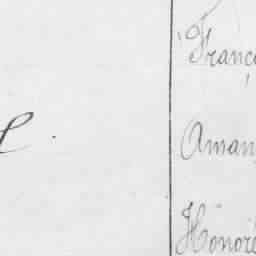 Franç
Aman
Honoré